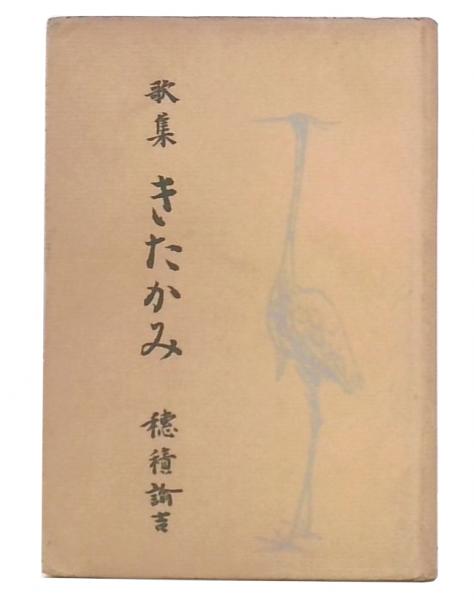 歌集 きたかみ 穂積諭吉